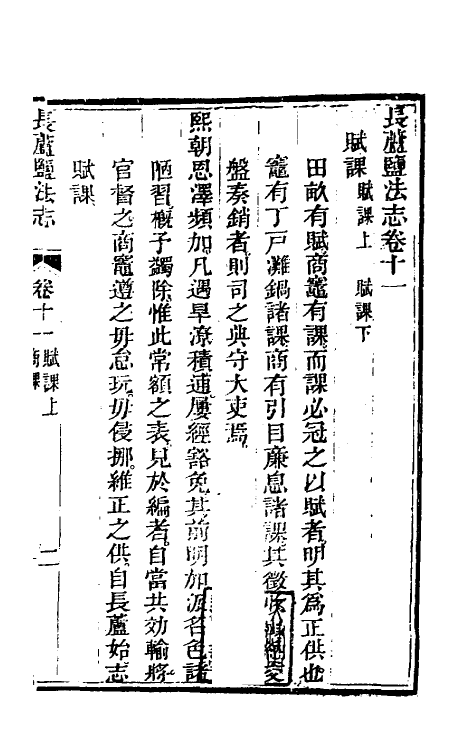 長蘆鹽法志卷十一
賦課 賦課上 賦課下
田畝有賦商竈有課而課必冠之以賦者明其為正供也
竈有丁戶灘鍋諸課商有引目廉息諸課其徵收
盤奏銷者則司之典守大吏焉
熙朝恩澤頻加凡遇旱潦積逋屢經豁免其前明加派名色諸
陋習概予蠲除惟此常額之表見於編者自當共効輸將
官督之商竈遵之毋怠玩毋侵挪維正之供自長蘆始志
賦課
長蘆鹽法志 卷十一 賦課上 商課 一